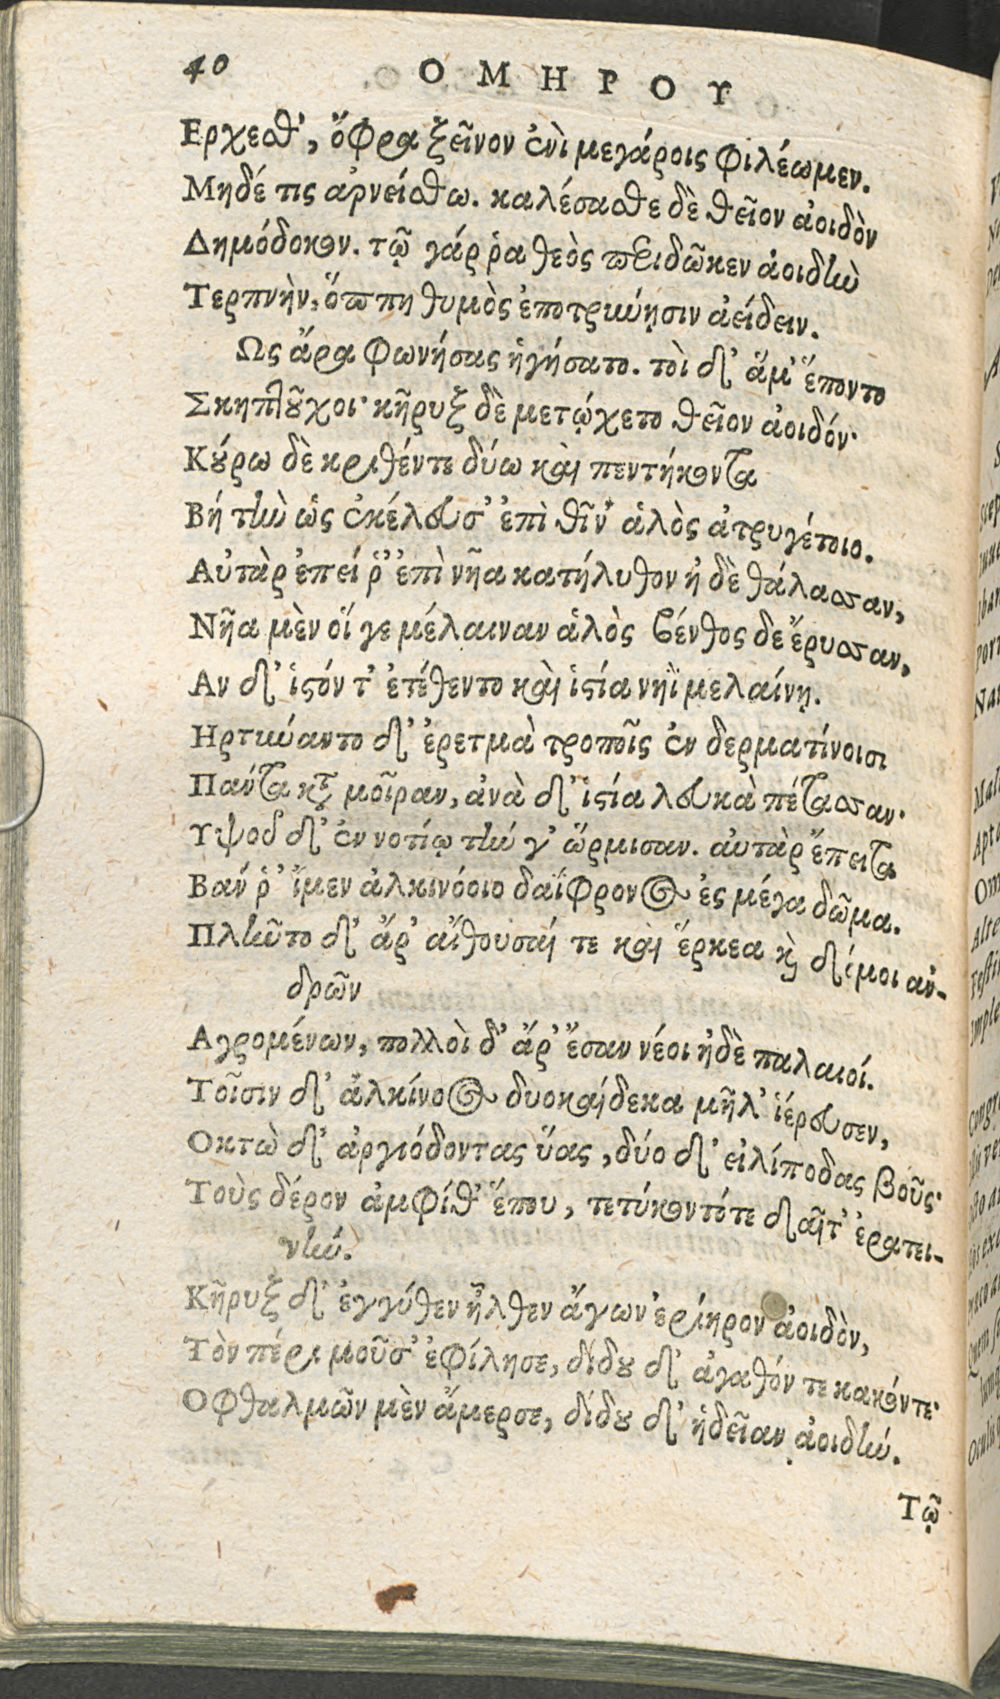 40 ΟΜΗΡΟΥ
Ερχεσθ', ὄφρα ξεῖνον ἐνὶ μεγάροις φιλέωμεν.
Μηδέ τις ἀρνείσθω. καλέσασθε δὲ θεῖον ἀοιδὸν
Δημόδοκον. τῷ γάρ ῥα θεὸς πειδῶκεν ἀοιδὴν
Τερπνὴν, ὅππη θυμὸς ἐποτρύνῃσιν ἀείδειν.
Ως ἄρα φωνήσας ἡγήσατο. τοὶ δ' ἅμ' ἕποντο
Σκηπτοῦχοι· κῆρυξ δὲ μετῴχετο θεῖον ἀοιδόν·
Κούρω δὲ κριθέντε δύω καὶ πεντήκοντα
Βή τὴν ὡς ἐκέλευσ' ἐπὶ θῖν' ἁλὸς ἀτρυγέτοιο.
Αὐτὰρ ἐπεί ῥ' ἐπὶ νῆα κατήλυθον ἠδὲ θάλασσαν,
Νῆα μὲν οἵ γε μέλαιναν ἁλὸς βένθος δε ἔρυσσαν,
Αν δ' ἱστόν τ' ἐτέθεντο καὶ ἱστία νηῒ μελαίνῃ.
Ηρτύναντο δ' ἐρετμὰ τροποῖς ἐν δερματίνοισι
Πάντα κατὰ μοῖραν, ἀνὰ δ' ἱστία λευκὰ πέτασσαν·
Υψοῦ δ' ἐν νοτίῳ τήν γ' ὥρμισαν. αὐτὰρ ἔπειτα
Βάν ῥ' ἴμεν ἀλκινόοιο δαΐφρονος ἐς μέγα δῶμα.
Πλῆντο δ' ἄρ' αἴθουσαί τε καὶ ἕρκεα καὶ δόμοι ἀν-
δρῶν
Αγρομένων, πολλοὶ δ' ἄρ' ἔσαν νέοι ἠδὲ παλαιοί.
Τοῖσιν δ' ἀλκίνοος δυοκαίδεκα μῆλ' ἱέρευσεν,
Οκτὼ δ' ἀργιόδοντας ὕας, δύο δ' εἰλίποδας βοῦς·
Τοὺς δέρον ἀμφίθ' ἕπου, τετύκοντότε δαῖτ' ἐρατει-
νήν.
Κῆρυξ δ' ἐγγύθεν ἦλθεν ἄγων ἐρίηρον ἀοιδὸν,
Τὸν πέρι μοῦσ' ἐφίλησε, δίδου δ' ἀγαθόν τε κακόντε·
Οφθαλμῶν μὲν ἄμερσε, δίδου δ' ἡδεῖαν ἀοιδήν.
Τῷ